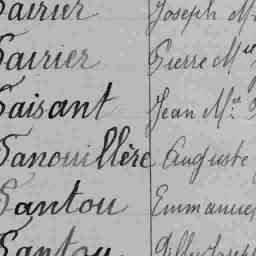 Pairier Joseph M
Pairier Pierre M
Paisant Jean M
Panouillère Auguste
Pantou Emmanuel
Pantou